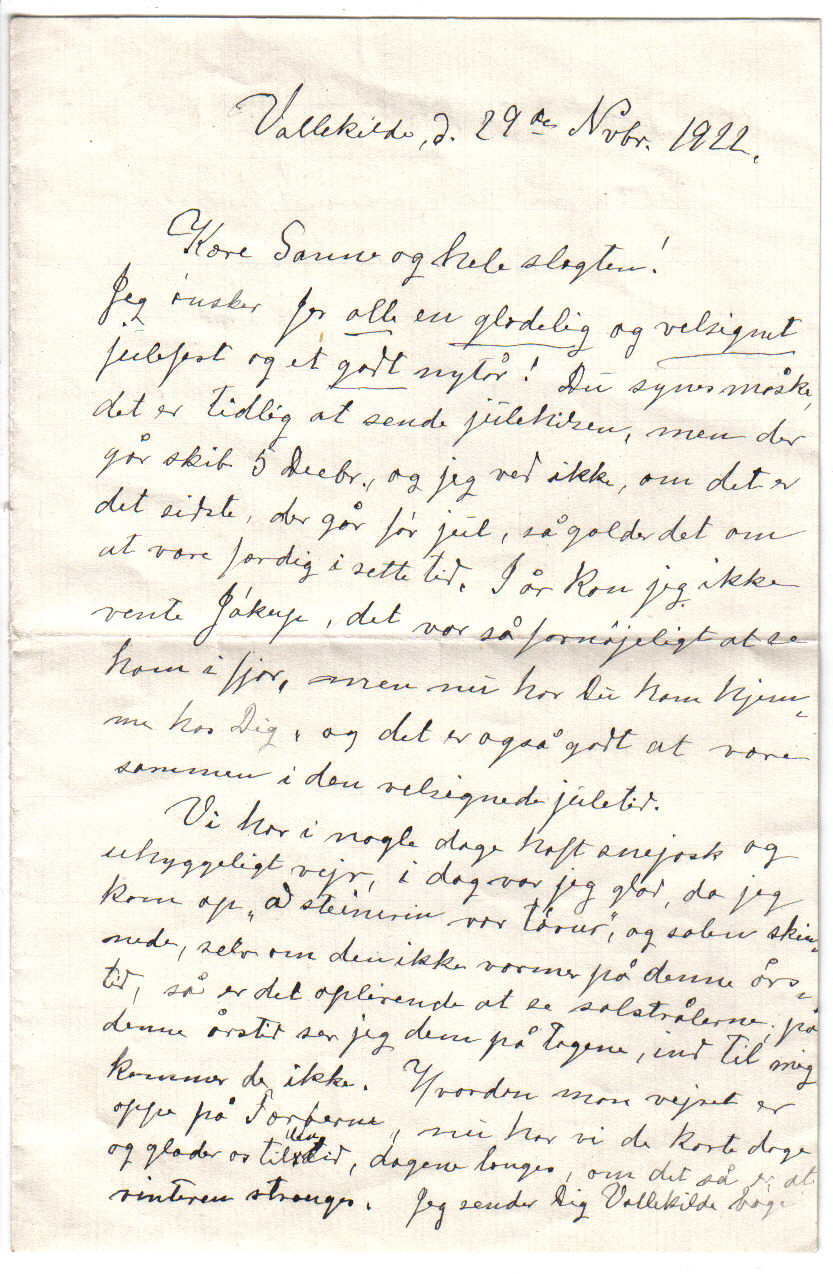 Vallekilde, d. 29de Nvbr. 1922.
Kære Sanne og hele slægten!
Jeg ønsker Jer alle en glædelig og velsignet
julefest og et godt nytår! Du synes måske,
det er tidlig at sende julehilsen, men der
går skib 5 Decbr., og jeg ved ikke, om det er
det sidste, der går før jul, så gælder det om
at være færdig i rette tid. I år kan jeg ikke
vente Jákup, det var så fornøjeligt at se
ham i fjor, men nu har Du ham hjem-
me hos Dig, og det er også godt at være
sammen i den velsignede juletid.
Vi har i nogle dage haft snejosk og
uhyggeligt vejr, i dag var jeg glad, da jeg
kom op, "að steinurin var turrur", og solen skin-
nede, selv om den ikke varmer på denne års-
tid, så er det oplivende at se solstrålerne, på
denne årstid ser jeg dem på tagene, ind til mig
kommer de ikke. Hvordan mon vejret er
oppe på Færøerne, nu har vi de korte dage
og glæder os til den tid, dagene længes, om det så er, at
vinteren strenges. Jeg sender Dig Vallekilde bog